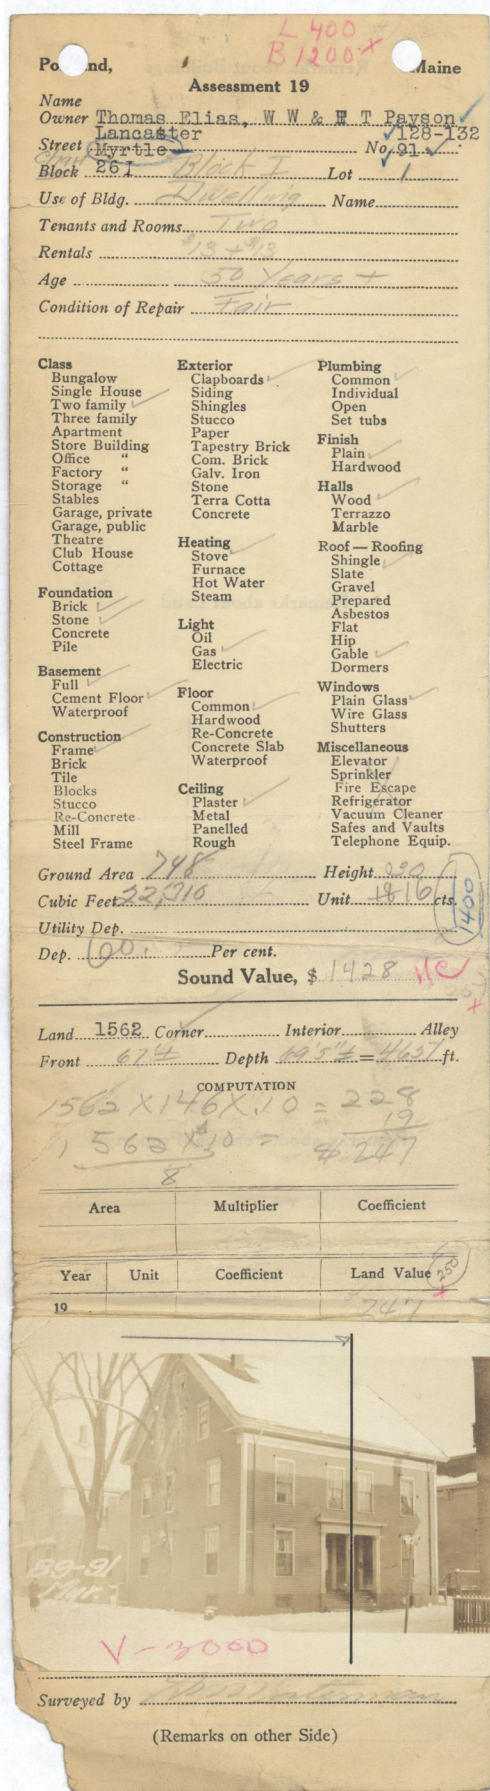 L 400
B 1200 x
Portland, Maine
Assessment 19
Name
Owner Thomas Elias, W W & H T Payson
Lancaster 128-132
Street Myrtle No. 91
Block 261 Block I Lot 1
Use of Bldg. Dwelling Name
Tenants and Rooms Two
Rentals $13 + $13
Age 50 Years +
Condition of Repair Fair
Class
Bungalow
Single House
Two family
Three family
Apartment
Store Building
Office "
Factory "
Storage "
Stables
Garage, private
Garage, public
Theatre
Club House
Cottage
Foundation
Brick
Stone
Concrete
Pile
Basement
Full
Cement Floor
Waterproof
Construction
Frame
Brick
Tile
Blocks
Stucco
Re-Concrete
Mill
Steel Frame
Exterior
Clapboards
Siding
Shingles
Stucco
Paper
Tapestry Brick
Com. Brick
Galv. Iron
Stone
Terra Cotta
Concrete
Heating
Stove
Furnace
Hot Water
Steam
Light
Oil
Gas
Electric
Floor
Common
Hardwood
Re-Concrete
Concrete Slab
Waterproof
Ceiling
Plaster
Metal
Panelled
Rough
Plumbing
Common
Individual
Open
Set tubs
Finish
Plain
Hardwood
Halls
Wood
Terrazzo
Marble
Roof — Roofing
Shingle
Slate
Gravel
Prepared
Asbestos
Flat
Hip
Gable
Dormers
Windows
Plain Glass
Wire Glass
Shutters
Miscellaneous
Elevator
Sprinkler
Fire Escape
Refrigerator
Vacuum Cleaner
Safes and Vaults
Telephone Equip.
Ground Area 748 Height
Cubic Feet Unit 16 cts.
1400
Utility Dep.
Dep. 60. Per cent.
Sound Value, $ 1428
Land 1562 Corner Interior Alley
Front Depth = ft.
COMPUTATION
1562 X 146 X .10 = 228
1562 X 10 = 19
8 $247
Area Multiplier Coefficient
Year Unit Coefficient Land Value 250
19 247
89-91
Myr.
V-3000
Surveyed by
(Remarks on other Side)